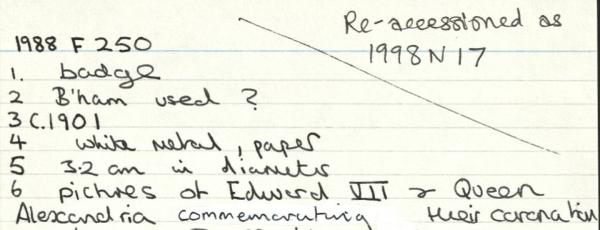 Re-accessioned as
1998 N 17
1988 F 250
1. badge
2 B'ham used ?
3 C.1901
4 white metal, paper
5 3.2 cm in diameter
6 pictures of Edward VII & Queen
Alexandria commemorating their coronation